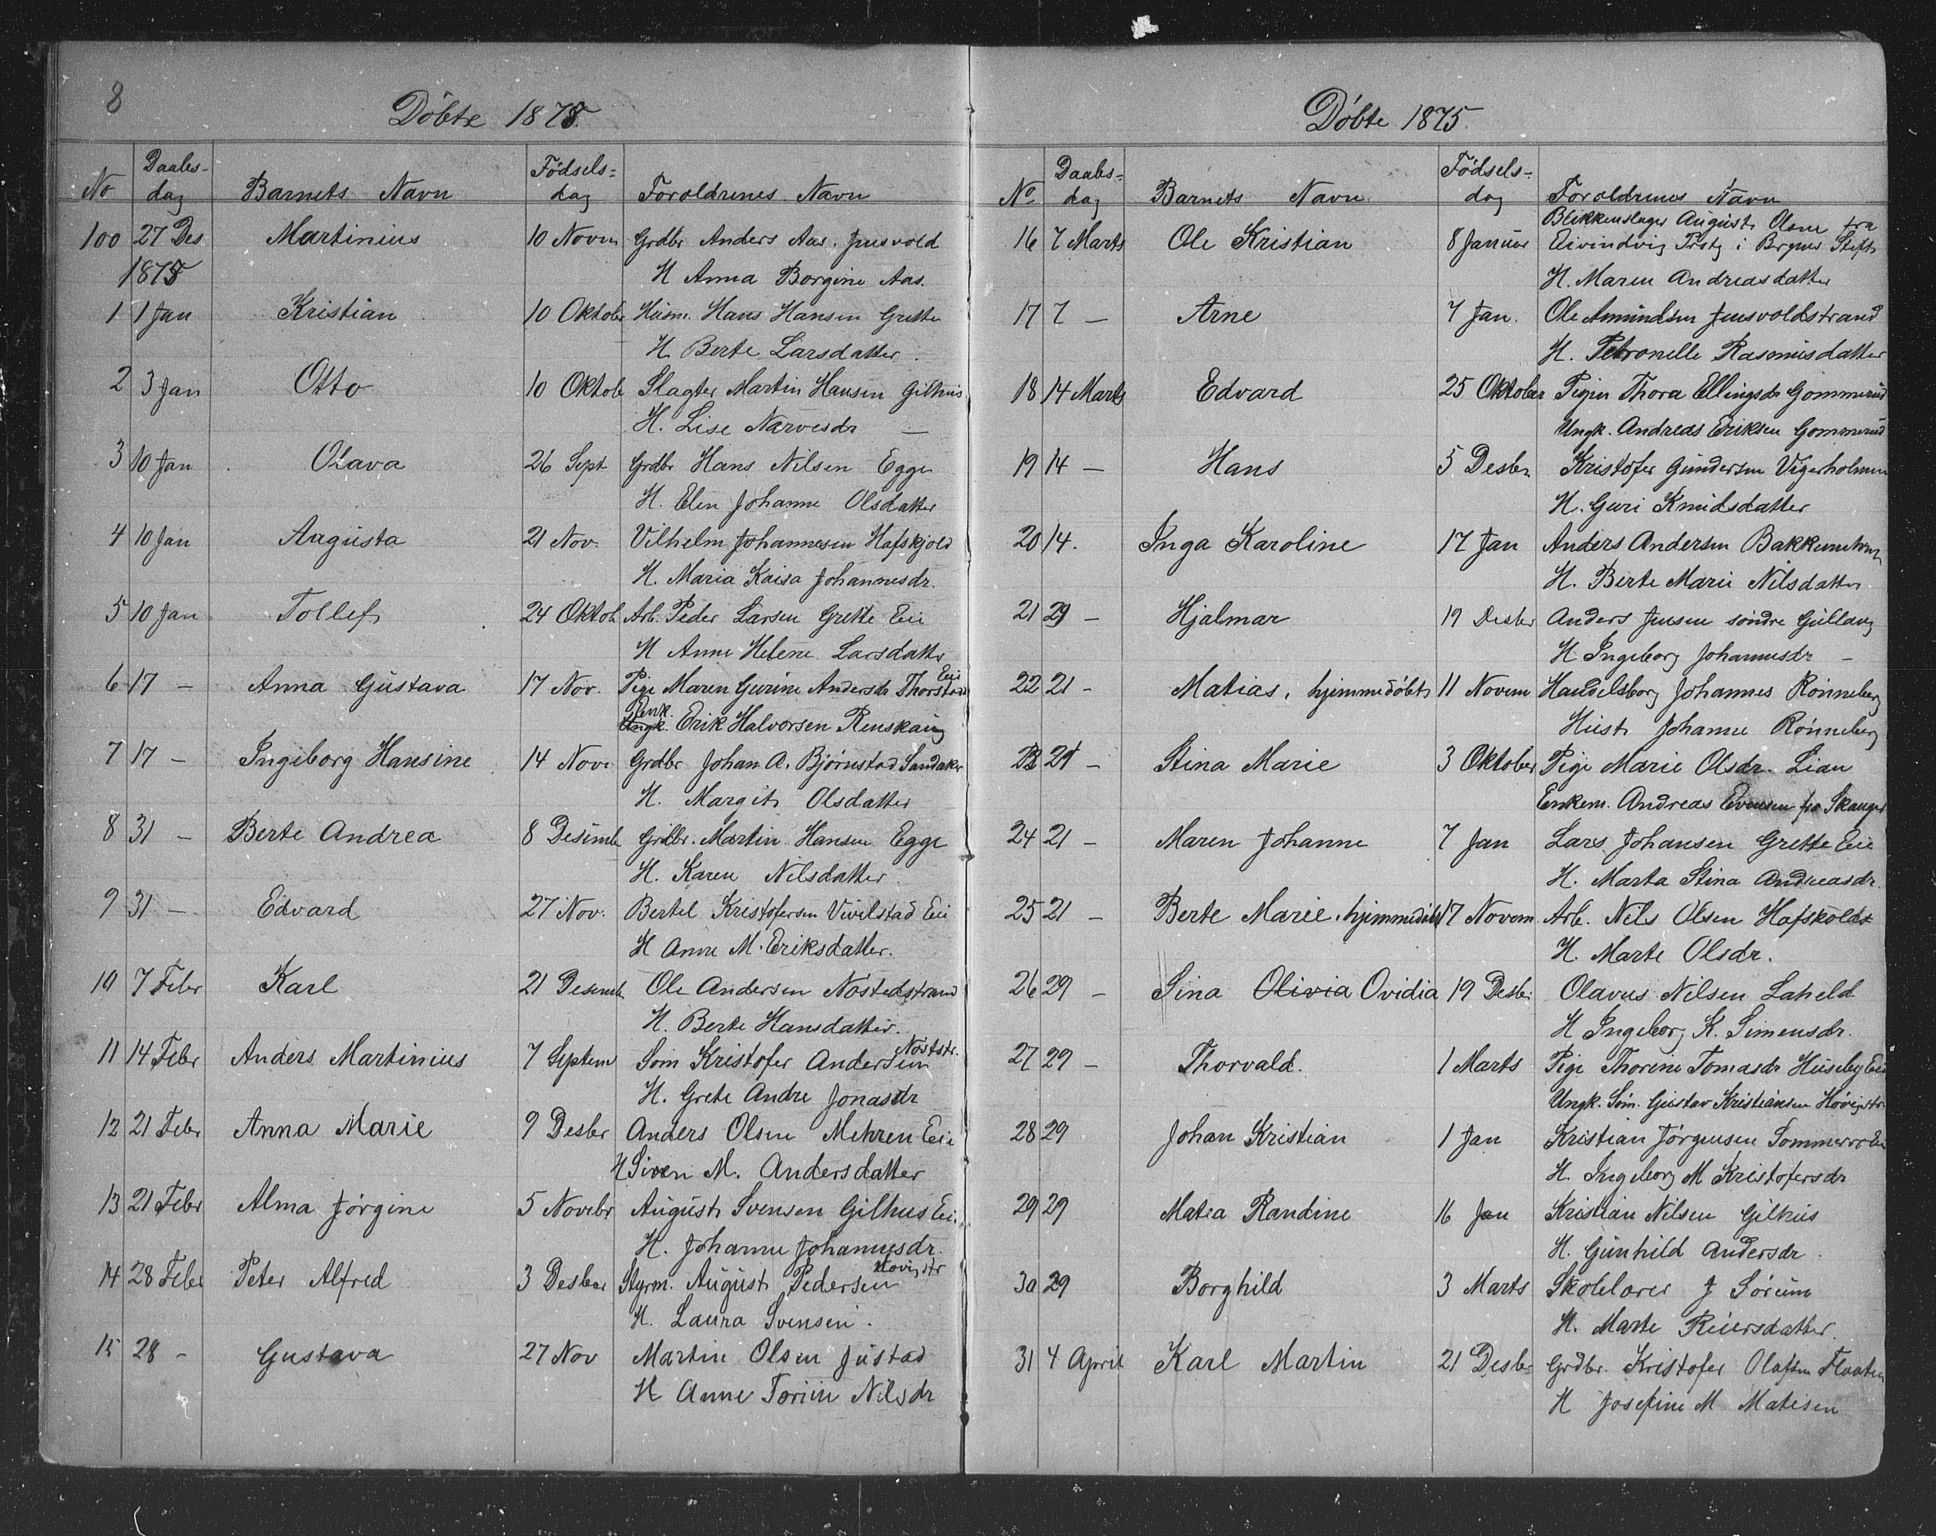 8
Döbte 1875.
No Daabs-dag Barnets Navn Fødsels-dag Foroldrenes Navn
100 27 Des Martinius 10 Novm Grdbr Anders Aas. Jusvold
1875 H Anna Borgine Aas.
1 1 Jan Kristian 10 Oktober Husm. Hans Hansen Grette
H. Berte Larsdatter.
2 3 Jan Otto 10 Oktob Slagter Martin Hansen Gilhus
H. Lise Narvesdr —
3 10 Jan Olava 26 Sept Grdbr Hans Nilsen Egge
H. Elen Johanne Olsdatter
4 10 Jan Augusta 21 Nov. Vilhelm Johannesen Hafskjold
H. Maria Kaisa Johannesdr.
5 10 Jan Tollef 24 Oktob Arb. Peder Larsen Grette Eie
H Anne Helene Larsdatter
6 17 — Anna Gustava 17 Nov. Pige Maren Gurine Andersdr Thorstad Eie
Enk. Erik Halvorsen Renskaug
7 17 — Ingeborg Hansine 14 Nov. Grdbr Johan A. Bjørnstad Sandaker
H. Margit Olsdatter
8 31 — Berte Andrea 8 Desemb Grdbr. Martin Hansen Egge
H. Karen Nilsdatter.
9 31 — Edvard 27 Nov. Bertel Kristofersen Vivilstad Eie
H Anne M. Eriksdatter.
10 7 Febr Karl 21 Desemb Ole Andersen Nöstedstrand
H. Berte Hansdatter.
11 14 Febr Anders Martinius 7 Septem Söm Kristofer Andersen Nöststr.
H. Grete Andre Jonasdr
12 21 Febr Anna Marie 9 Desbr Anders Olsen Mehren Eie
H Siven M. Andersdatter
13 21 Febr Alma Jørgine 5 Novebr August Svensen Gilhus Eie
H. Johanne Johannesdr.
14 28 Febr Peter Alfred 3 Desbr Styrm. August Pedersen Høvigstr
H. Laura Svensen.
15 28 — Gustava 27 Nov Martin Olsen Justad
H Anne Torine Nilsdr
Döbte 1875.
No. Daabs-dag Barnets Navn Fødsels-dag Foroldrenes Navn
16 7 Marts Ole Kristian 8 Januar Blikkenslager August Olsen fra
Eivindvig Prstg i Brgens Stift
H. Maren Andreasdatter
17 7 — Arne 7 Jan. Ole Amundsen Jusvoldstrand
H. Petronelle Rasmusdatter
18 14 Marts Edvard 25 Oktober Pigen Thora Ellingsdr Gommerud
Ungk. Andreas Eriksen Gommerud
19 14 — Hans 5 Desbr Kristofer Gundersen Vigerholmen
H. Guri Knudsdatter
20 14. Inga Karoline 17 Jan Anders Andersen
H. Berte Marie Nilsdatter
21 29 — Hjalmar 19 Desbr Anders Jensen söndre Gullaug
H Ingeborg Johannesdr —
22 21 — Matias, hjemmedöbt 11 Novem Handelsborg Johannes Rønneberg
Hust. Johanne Rønneberg
23 21 — Stina Marie 3 Oktober Pige Marie Olsdr. Lian
Enkem. Andreas Evensen fra Skauger
24 21 — Maren Johanne 7 Jan Lars Johansen Grette Eie
H. Marta Stina Andreasdr.
25 21 — Berte Marie, hjemmedöbt 17 Novem Arb. Nils Olsen Hafskold
H. Marte Olsdr.
26 29 — Sina Olivia Ovidia 19 Desbr Olavus Nilsen Laheld
H Ingeborg K. Simensdr.
27 29 — Thorvald. 1 Marts Pige Thorine Tomasdr Huseby Eie
Ungk. Söm. Gustav Kristiansen Høvigstr
28 29 Johan Kristian 1 Jan Kristian Jørgensen Sommerro Eie
H. Ingeborg M Kristofersdr
29 29 Matea Randine 16 Jan Kristian Nilsen Gilhus
H. Gunhild Andersdr.
30 29 Borghild 3 Marts Skolelærer J Sørum
H. Marte Reiersdatter.
31 4 April Karl Martin 21 Desbr Grdbr. Kristofer Olafsen Flaaten
H Josefine M Matisen